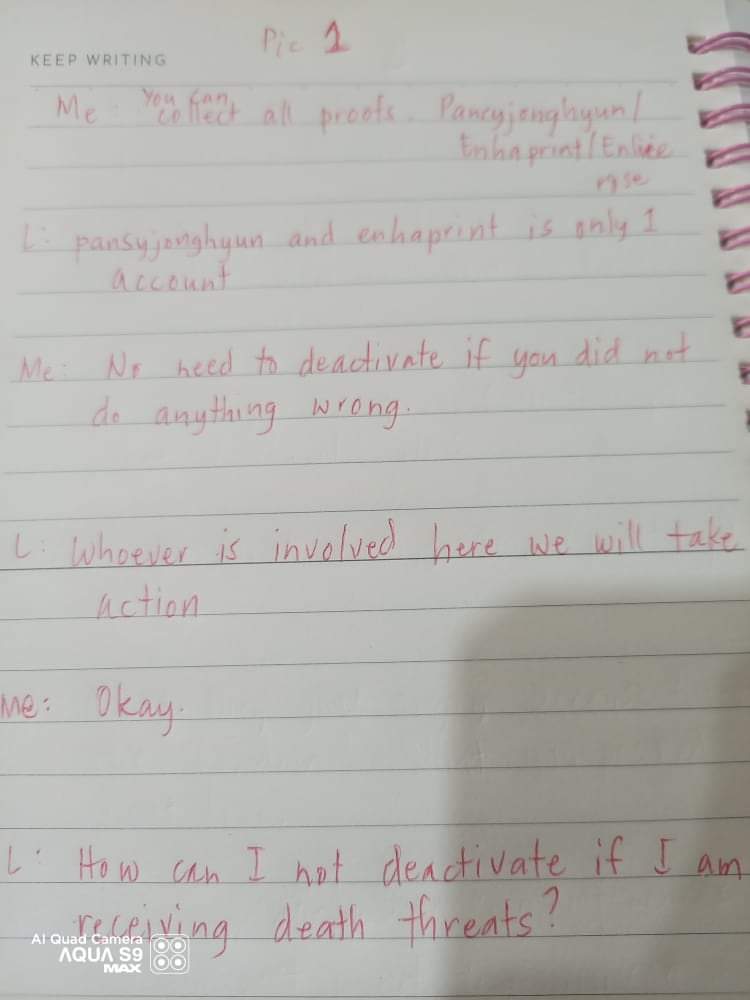 Pic 1
KEEP WRITING
Me: You can
collect all proofs. Pancyjonghyun/
Enhaprint/Enliee
rise
L: pansyjonghyun and enhaprint is only 1
account
Me: No need to deactivate if you did not
do anything wrong.
L: Whoever is involved here we will take
action
Me: Okay.
L: How can I not deactivate if I am
receiving death threats?
AI Quad Camera
AQUA S9
MAX